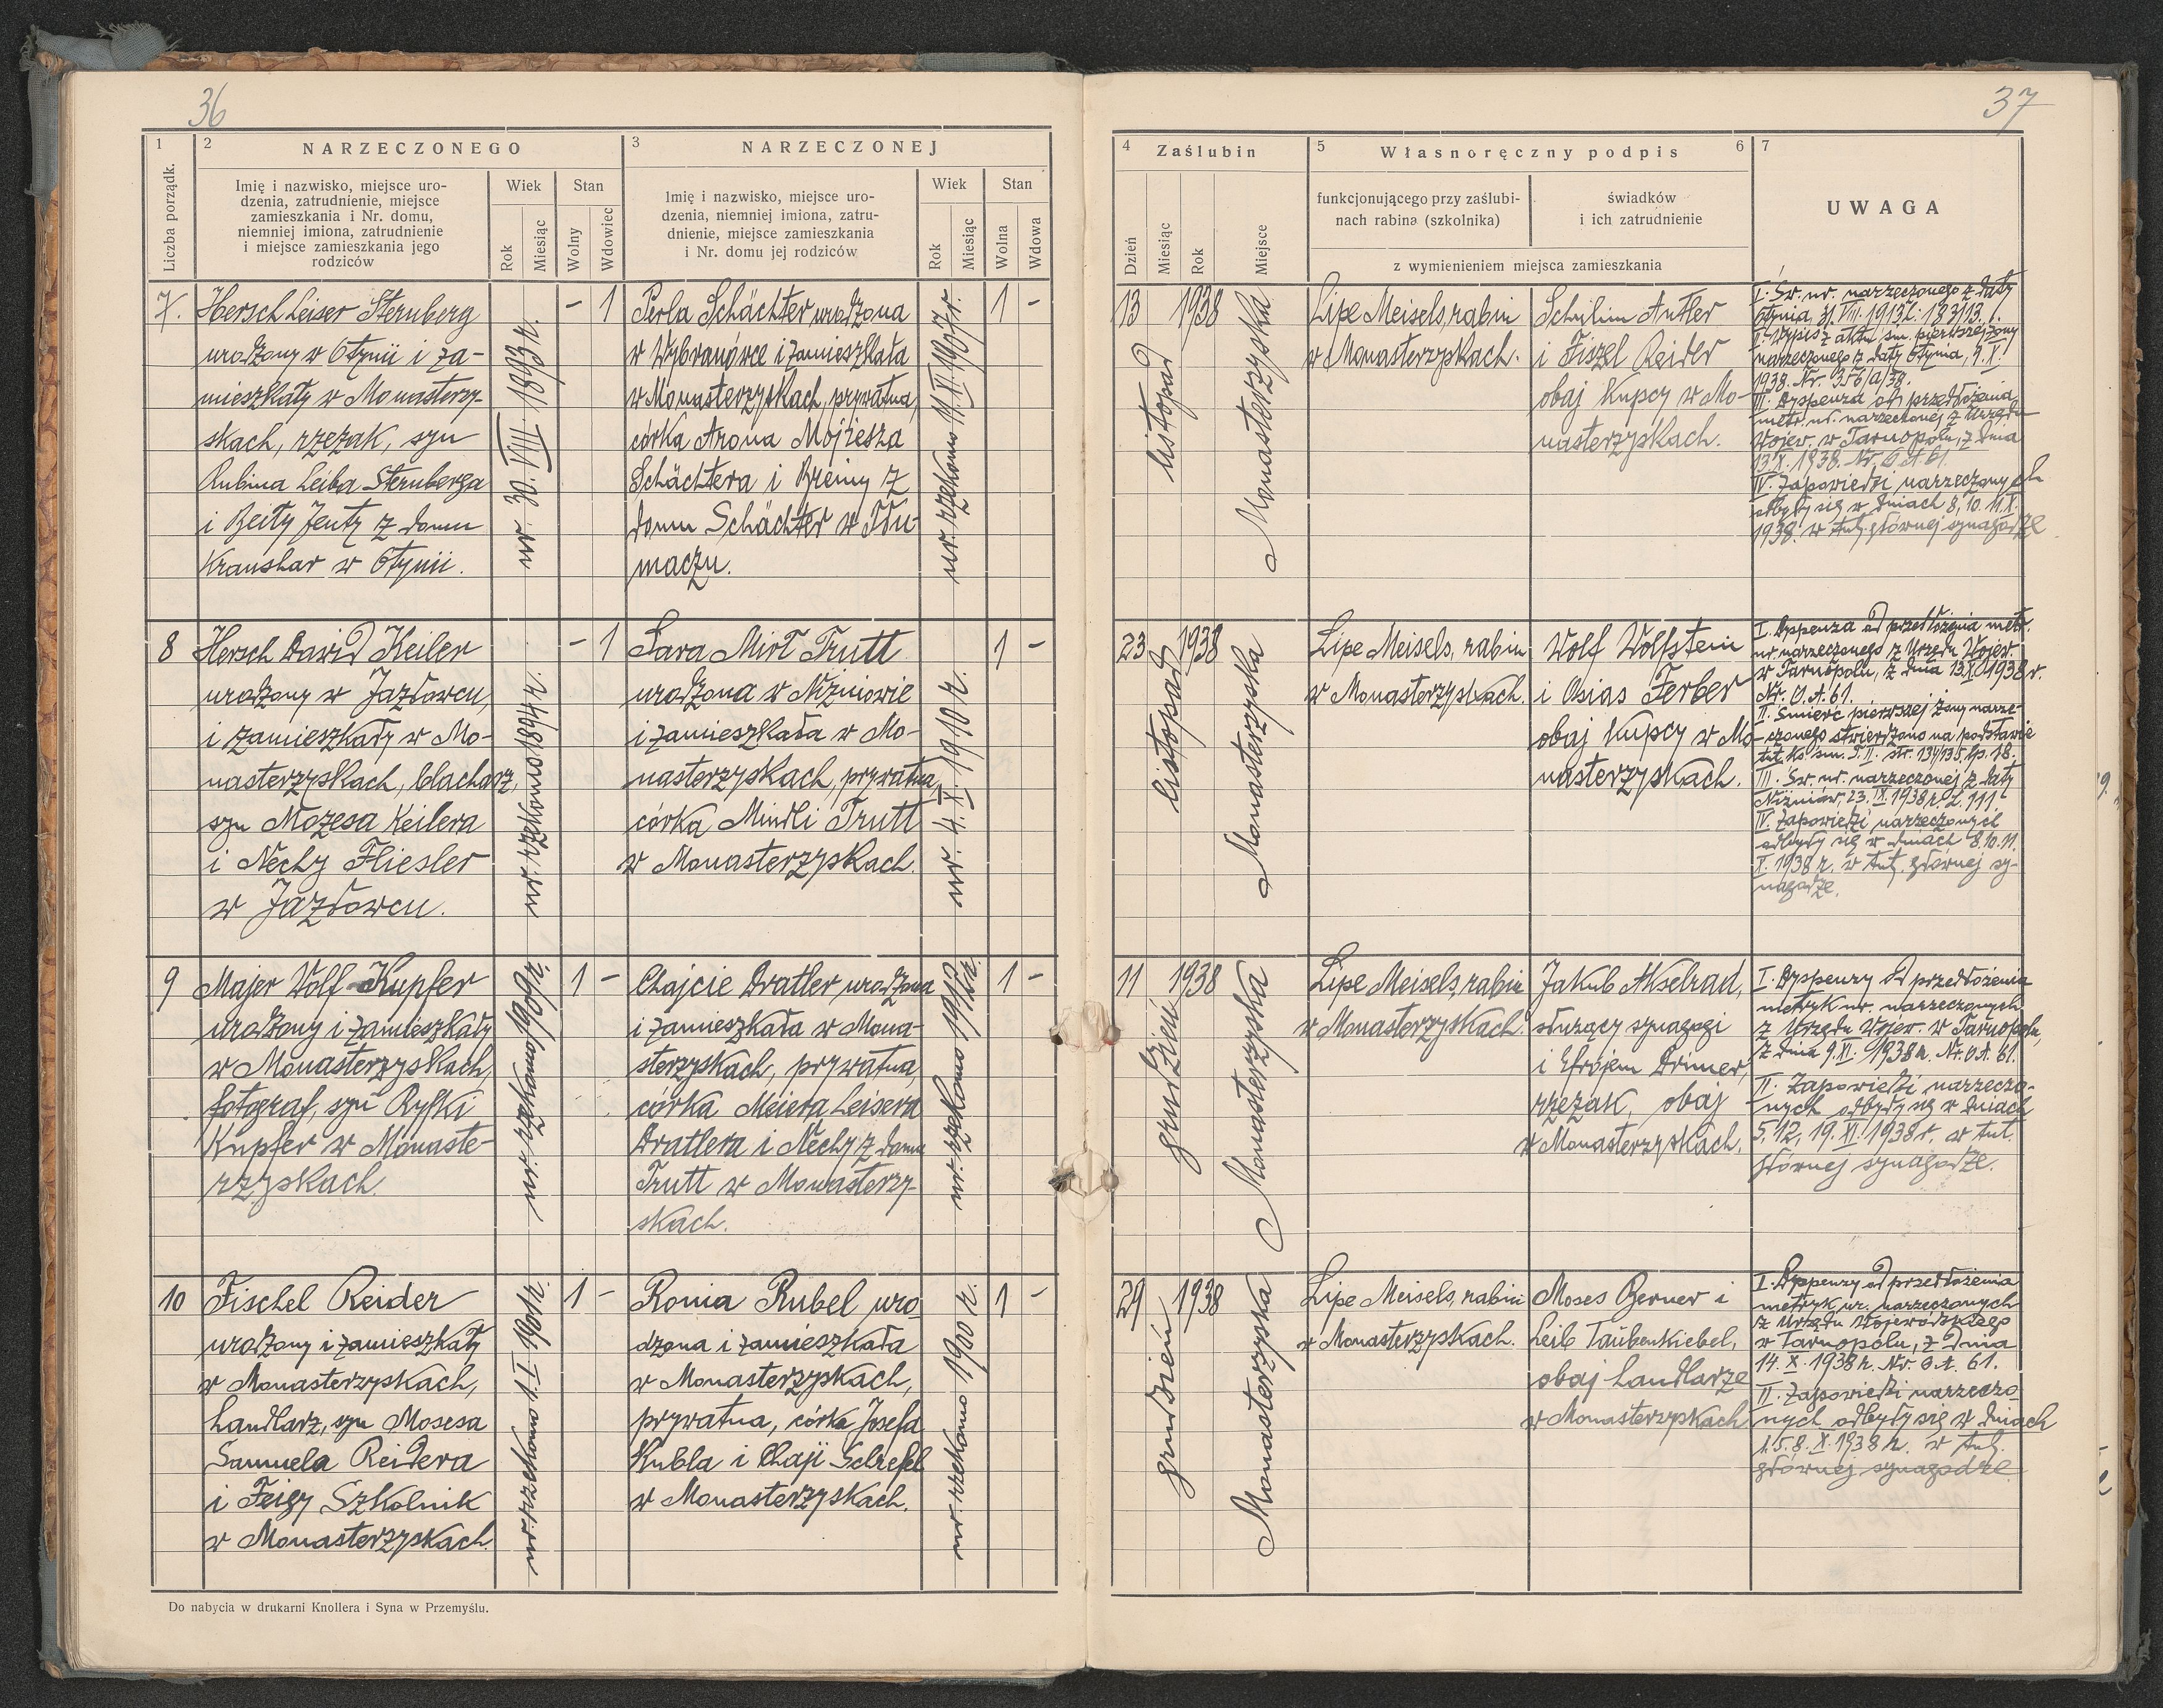 36
1
2
NARZECZONEGO
3
NARZECZONEJ
Liczba porządk.
Imię i nazwisko, miejsce uro-
dzenia, zatrudnienie, miejsce
zamieszkania i Nr. domu,
niemniej imiona, zatrudnienie
i miejsce zamieszkania jego
rodziców
Wiek
Rok
Miesiąc
Stan
Wolny
Wdowiec
Imię i nazwisko, miejsce uro-
dzenia, niemniej imiona, zatru-
dnienie, miejsce zamieszkania
i Nr. domu jej rodziców
Wiek
Rok
Miesiąc
Stan
Wolna
Wdowa
7.
Hersch Leiser Sternberg
urodzony w Otynii i za-
mieszkały w Monasterzy-
skach, rzezak, syn
Rubina Leiba Sternberga
i Beity Jenty z domu
Kranshar w Otynii.
ur. 30. VIII 1893 r.
- 1
Perla Schächter urodzona
w Wybranówce i zamieszkała
w Monasterzyskach, prywatna,
córka Arona Mojżesza
Schächtera i Breiny z
domu Schächter w Tłu-
maczu.
ur. rzekomo 11. X. 1907 r.
1 -
8
Hersch Dawid Keiler
urodzony w Jazłowcu,
i zamieszkały w Mo-
nasterzyskach, blacharz,
syn Mozesa Keilera
i Nechy Fliesler
w Jazłowcu.
ur. rzekomo 1894 r.
- 1
Sara Mirl Trutt
urodzona w Niżniowie
i zamieszkała w Mo-
nasterzyskach, prywatna,
córka Mindli Trutt
w Monasterzyskach.
ur. 4. X. 1910 r.
1 -
9
Majer Wolf Kupfer
urodzony i zamieszkały
w Monasterzyskach,
fotograf, syn Ryfki
Kupfer w Monaste-
rzyskach.
ur. rzekomo 1909 r.
1 -
Chajcie Dratler urodzona
i zamieszkała w Mona-
sterzyskach, prywatna,
córka Meiera Leisera
Dratlera i Nechy z domu
Trutt w Monasterzy-
skach.
ur. rzekomo
1 -
10
Fischel Reider
urodzony i zamieszkały
w Monasterzyskach,
handlarz, syn Mosesa
Samuela Reidera
i Feigy Szkolnik
w Monasterzyskach.
ur. rzekomo 1. I. 1901 r.
1 -
Ronia Rubel uro
dzona i zamieszkała
w Monasterzyskach,
prywatna, córka Josefa
Rubla i Chaji
w Monasterzyskach.
ur. rzekomo 1900 r.
1 -
Do nabycia w drukarni Knollera i Syna w Przemyślu.
37
4
Zaślubin
5
Własnoręczny podpis
6
7
Dzień
Miesiąc
Rok
Miejsce
funkcjonującego przy zaślubi-
nach rabina (szkolnika)
świadków
i ich zatrudnienie
z wymienieniem miejsca zamieszkania
UWAGA
13
listopad
1938
Monasterzyska
Lipe Meisels, rabin
w Monasterzyskach.
Schulim Antler
i Fiszel Reider
obaj kupcy w Mo-
nasterzyskach.
I. Św. ur. narzeczonego z daty
Otynia, 31. VIII. 1913 L: 183/13.
II. Wypis z aktu śm. pierwszej żony
narzeczonego z daty Otynia, 9. X.
1938. Nr. 356/a/38.
III. Dyspenza od przedłożenia
metr. ur. narzeczonej z Urzędu
Wojew. w Tarnopolu, z dnia
13. X. 1938. Nr. O.A. 61.
IV. Zapowiedzi narzeczonych
odbyły się w dniach 8, 10. 11. X.
1938. w tut. głównej synagodze
23
listopad
1938
Monasterzyska
Lipe Meisels, rabin
w Monasterzyskach.
Wolf Wolfstein
i Osias Ferber
obaj kupcy w Mo-
nasterzyskach.
I. Dyspenza od przedłożenia metr.
ur. narzeczonego z Urzędu Wojew.
w Tarnopolu, z dnia 13. X. 1938 r.
Nr. O.A. 61.
II. Śmierć pierwszej żony narze-
czonego stwierdzono na podstawie
tut. ks. śm. T. II. str. 134/135. lp. 18.
III. Św. ur. narzeczonej z daty
Niżniów, 23. IX. 1938 r. L. 111.
IV. Zapowiedzi narzeczonych
odbyły się w dniach 8. 10. 11.
X. 1938 r. w tut. głównej sy-
nagodze.
11
grudzień
1938
Monasterzyska
Lipe Meisels, rabin
w Monasterzyskach.
Jakub Akselrad,
służący synagogi
i Efrojem Drimer,
rzezak, obaj
w Monasterzyskach.
I. Dyspenzy od przedłożenia
metryk ur. narzeczonych
z Urzędu Wojew. w Tarnopolu,
z dnia 9. XI. 1938 r. Nr. O.A. 61.
II. Zapowiedzi narzeczo-
nych odbyły się w dniach
5, 12, 19. XI. 1938 r. w tut.
głównej synagodze.
29
grudzień
1938
Monasterzyska
Lipe Meisels, rabin
w Monasterzyskach.
Moses Berner i
Leib Taubenkiebel,
obaj handlarze
w Monasterzyskach
I. Dyspenzy od przedłożenia
metryk ur. narzeczonych
z Urzędu Wojewódzkiego
w Tarnopolu, z dnia
14. X. 1938 r. Nr. O.A. 61.
II. Zapowiedzi narzeczo
nych odbyły się w dniach
1. 5. 8. X. 1938 r. w tut.
głównej synagodze